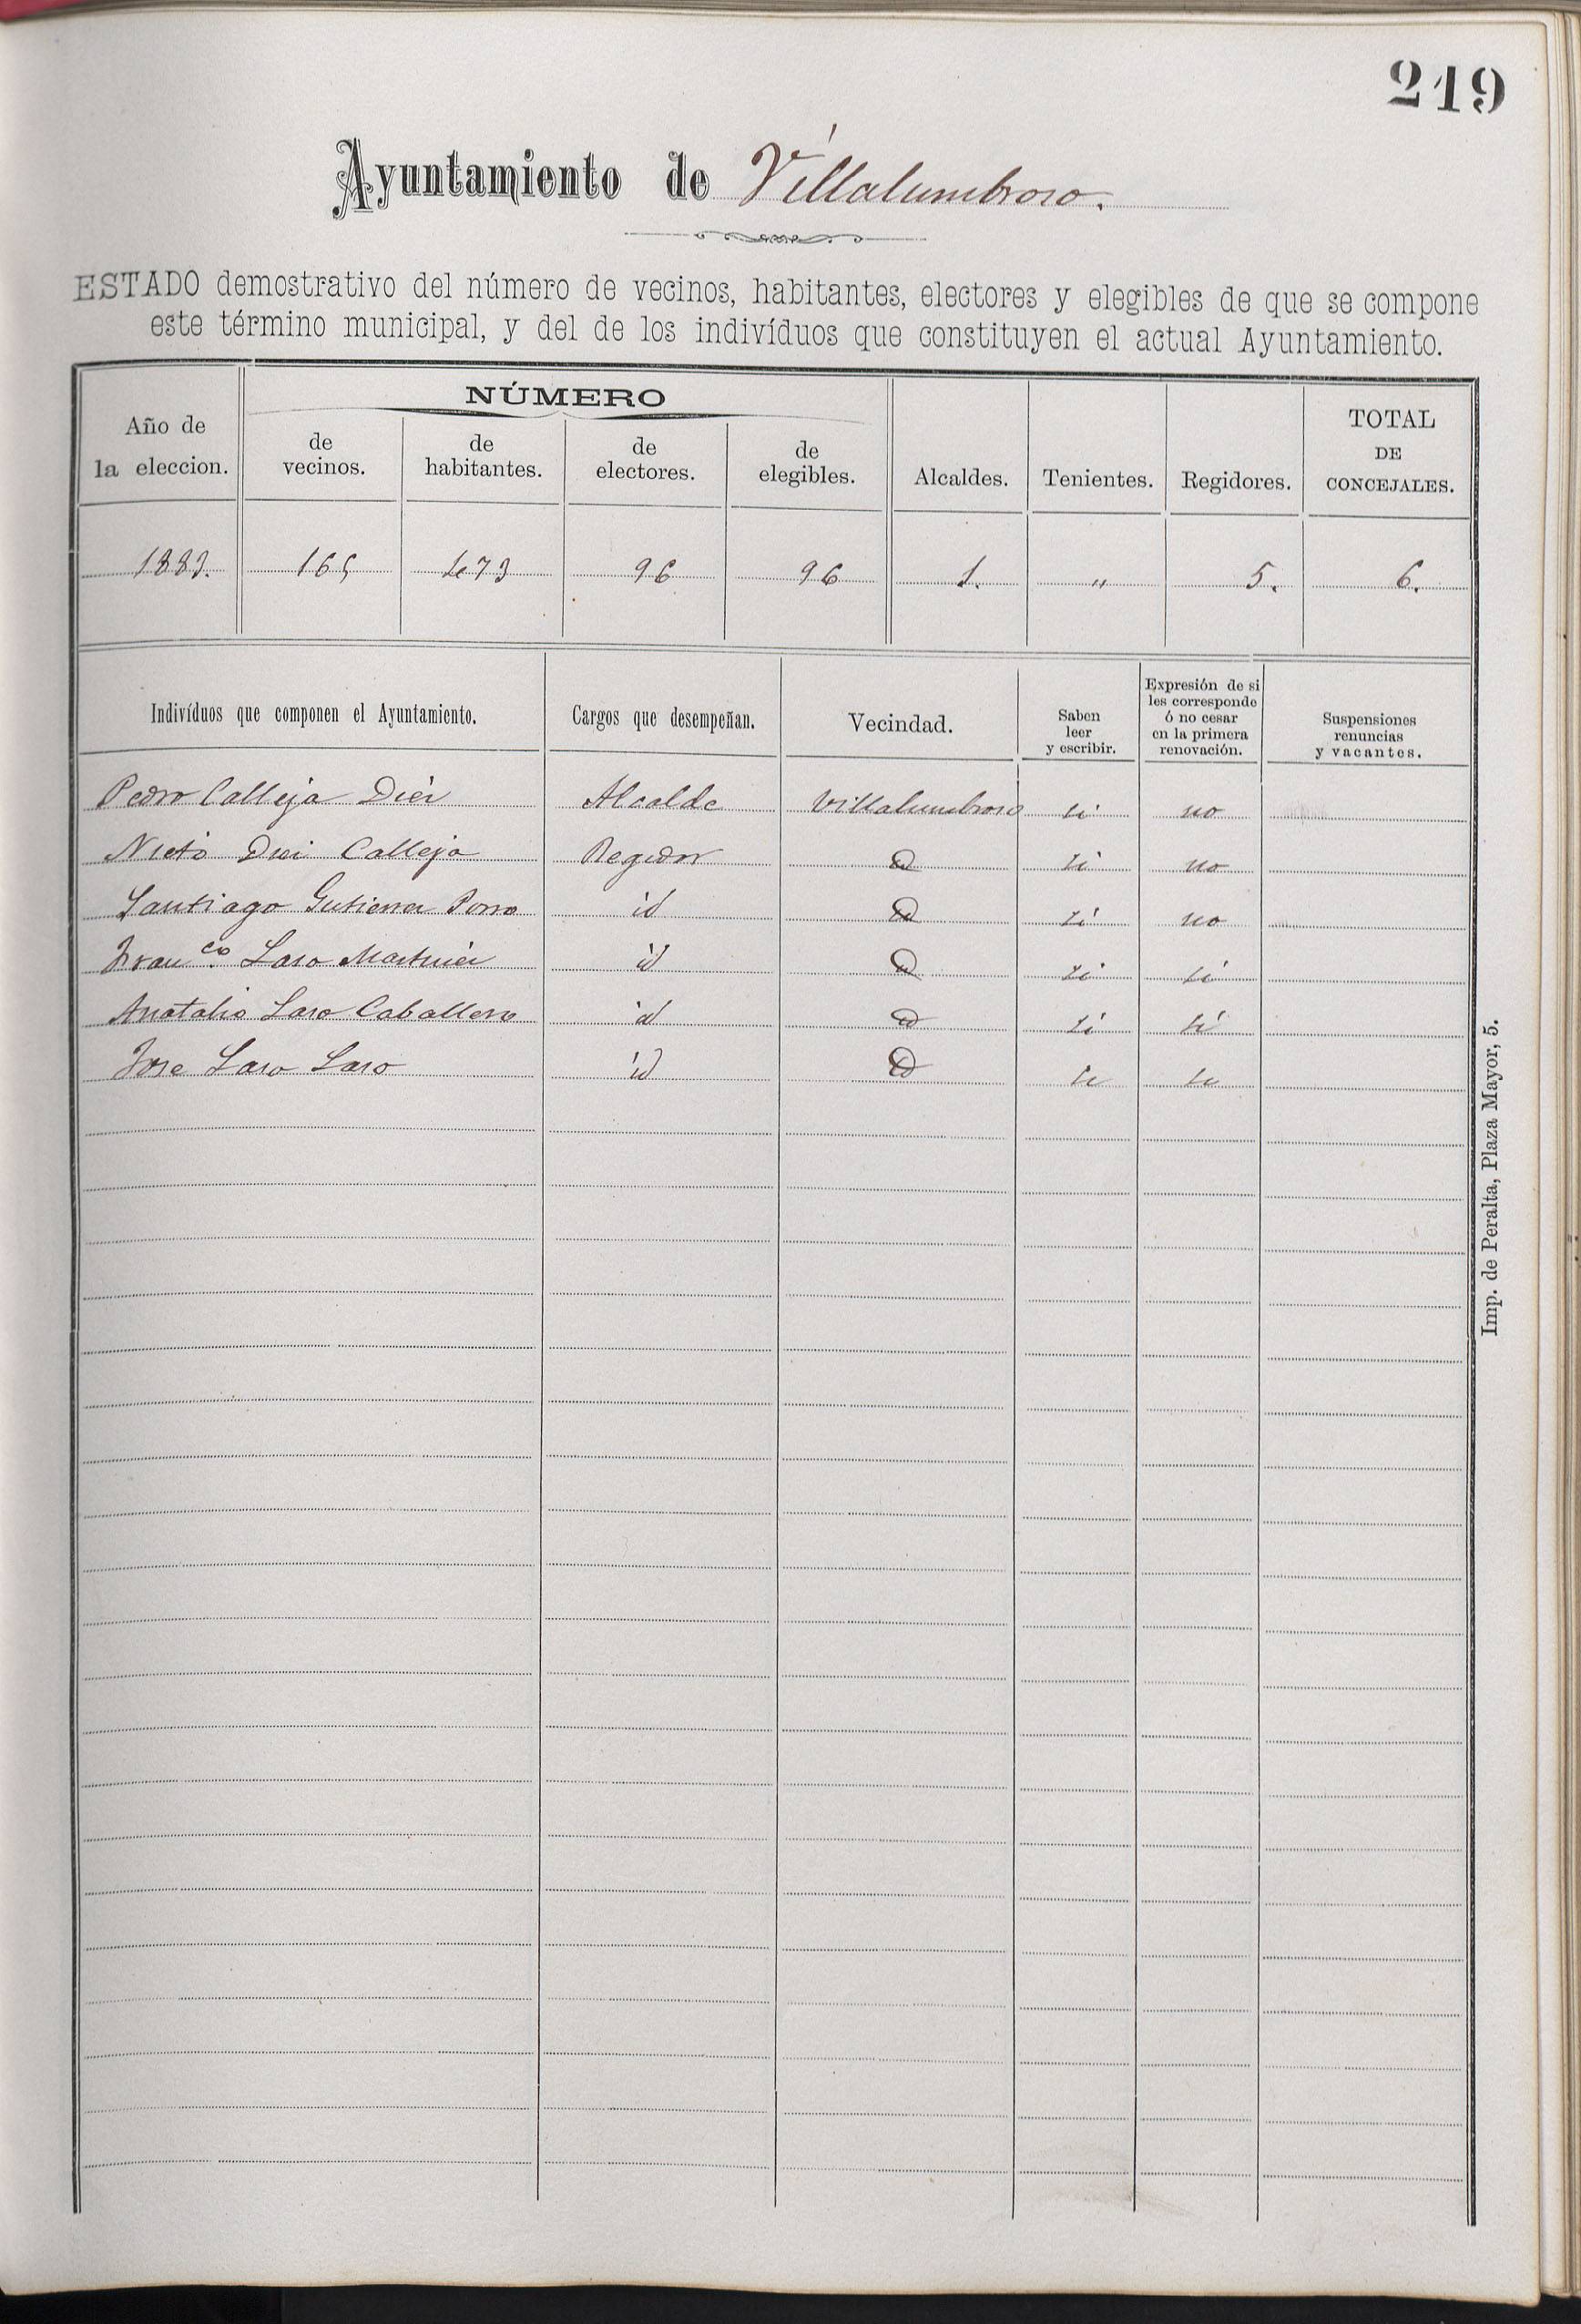 219
Ayuntamiento de Villalumbroso.
ESTADO demostrativo del número de vecinos, habitantes, electores y elegibles de que se compone
este término municipal, y del de los indivíduos que constituyen el actual Ayuntamiento.
Año de la eleccion. NÚMERO de vecinos. de habitantes. de electores. de elegibles. Alcaldes. Tenientes. Regidores. TOTAL DE CONCEJALES.
1883. 165 473 96 96 1. " 5. 6.
Indivíduos que componen el Ayuntamiento. Cargos que desempeñan. Vecindad. Saben leer y escribir. Expresión de si les corresponde ó no cesar en la primera renovación. Suspensiones renuncias y vacantes.
Pedro Calleja Diéz Alcalde Villalumbroso si no
Calleja Regidor id si no
Santiago Gutierrez id id si no
Franco. Laso Martinéz id id si si
Anatalio Laso Caballero id id si si
Jose Laso Laso id id si si
Imp. de Peralta, Plaza Mayor, 5.